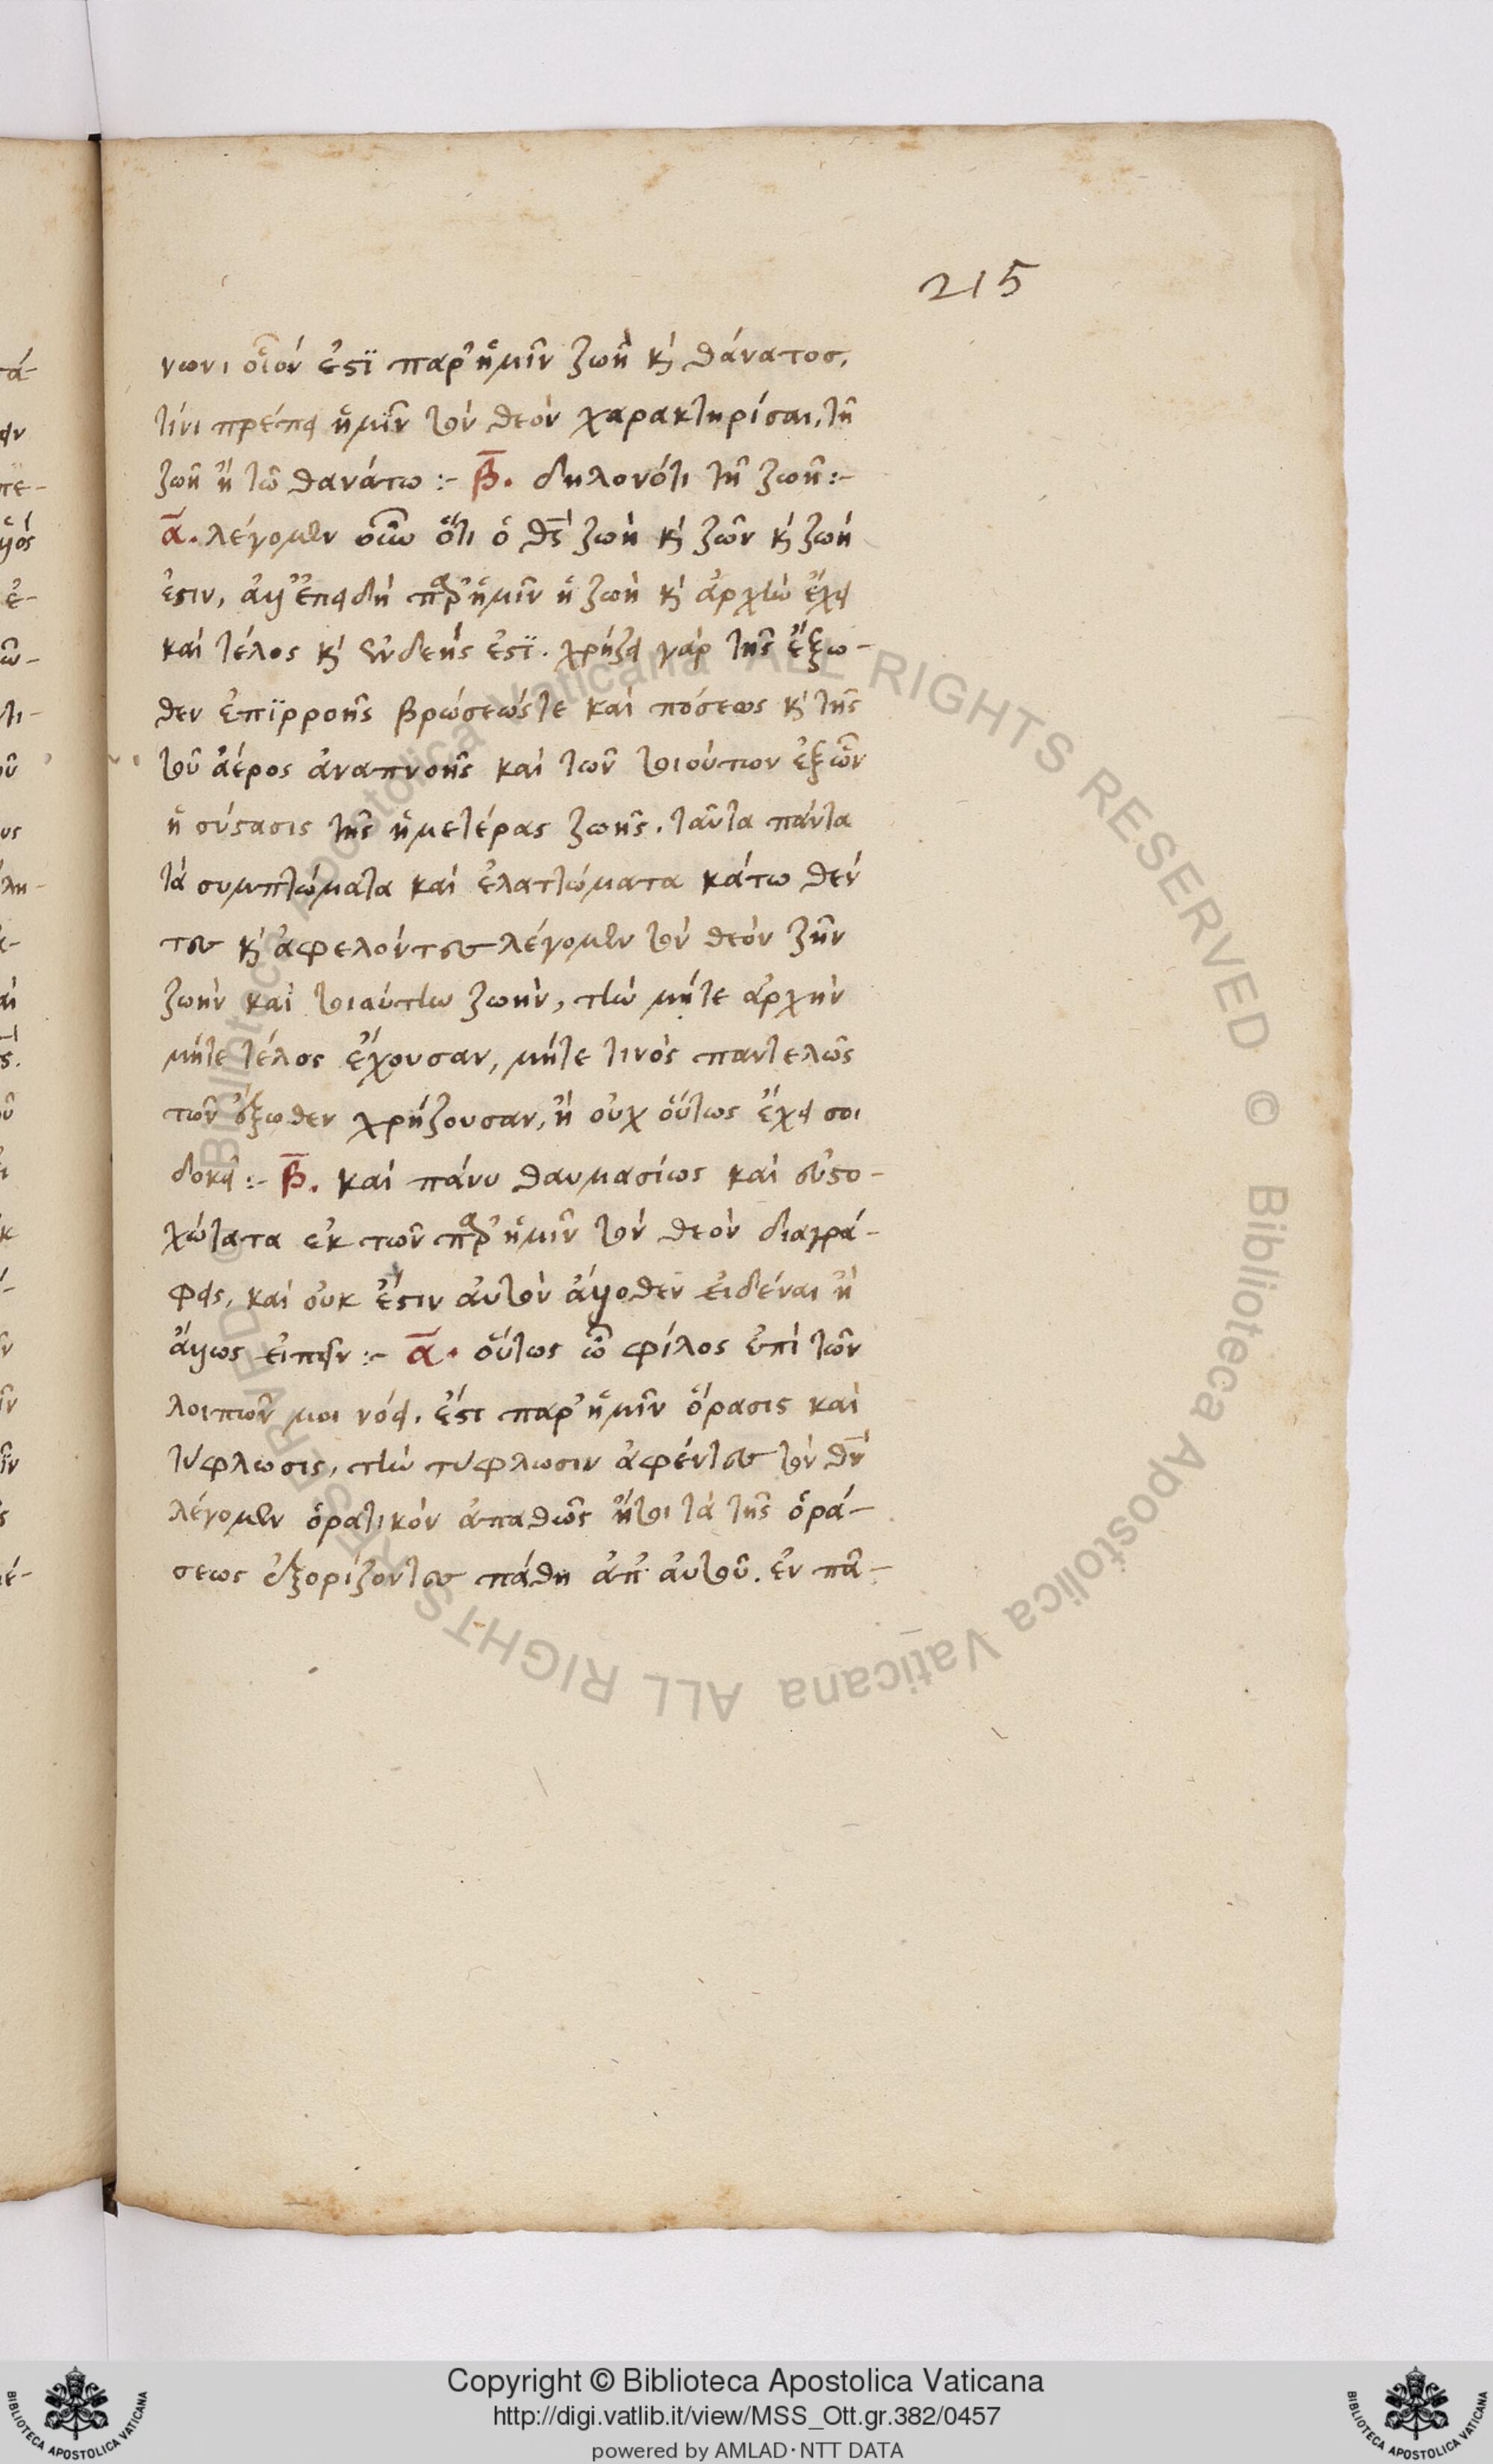 215
νωνι οἷόν ἐστὶ παρ' ἡμῖν ζωὴ καὶ θάνατος,
τίνι πρέπει ἡμῖν τὸν θεὸν χαρακτηρίσαι, τῆ
ζωῆ ἢ τῶ θανάτω :- β̅. δηλονότι τῆ ζωῆ :-
α̅. λέγομεν οὖν ὅτι ὁ θς̅ ζωὴ καὶ ζῶν καὶ ζωή
ἐστιν, ἀλλ' ἐπειδὴ παρ' ἡμῖν ἡ ζωὴ καὶ ἀρχὴν ἔχει
καὶ τέλος καὶ ἐνδεής ἐστὶ. χρήζει γὰρ τῆς ἔξω-
θεν ἐπιρροῆς βρώσεώς τε καὶ πόσεως καὶ τῆς
τοῦ ἀέρος ἀναπνοῆς καὶ τῶν τοιούτων ἐξ ὧν
ἡ σύστασις τῆς ἡμετέρας ζωῆς. ταῦτα πάντα
τὰ συμπτώματα καὶ ἐλαττώματα κάτω θέν
τες καὶ ἀφελόντες λέγομεν τὸν θεὸν ζῆν
ζωὴν καὶ τοιαύτην ζωὴν, τὴν μήτε ἀρχὴν
μήτε τέλος ἔχουσαν, μήτε τινὸς παντελῶς
τῶν ἔξωθεν χρήζουσαν, ἢ οὐχ οὕτως ἔχει σοι
δοκεῖ :- β̅. καὶ πάνυ θαυμασίως καὶ εὐστο-
χώτατα ἐκ τῶν παρ' ἡμῖν τὸν θεὸν διαγρά-
φεις, καὶ οὐκ ἔστιν αὐτὸν ἄλλοθεν εἰδέναι ἢ
ἄλλως εἰπεῖν :- α̅. οὕτως ὦ φίλος ἐπὶ τῶν
λοιπῶν μοι νόει. ἔστι παρ' ἡμῖν ὅρασις καὶ
τύφλωσις, τὴν τύφλωσιν ἀφέντες τὸν θν̅
λέγομεν ὁρατικὸν ἀπαθῶς ἤτοι τὰ τῆς ὁρά-
σεως ἐξορίζοντες πάθη ἀπ' αὐτοῦ. ἐν πᾶ-
© Biblioteca Apostolica Vaticana ALL RIGHTS RESERVED © Biblioteca Apostolica Vaticana ALL RIGHTS RESERVED
BIBLIOTECA APOSTOLICA VATICANA
Copyright © Biblioteca Apostolica Vaticana
http://digi.vatlib.it/view/MSS_Ott.gr.382/0457
powered by AMLAD·NTT DATA
BIBLIOTECA APOSTOLICA VATICANA